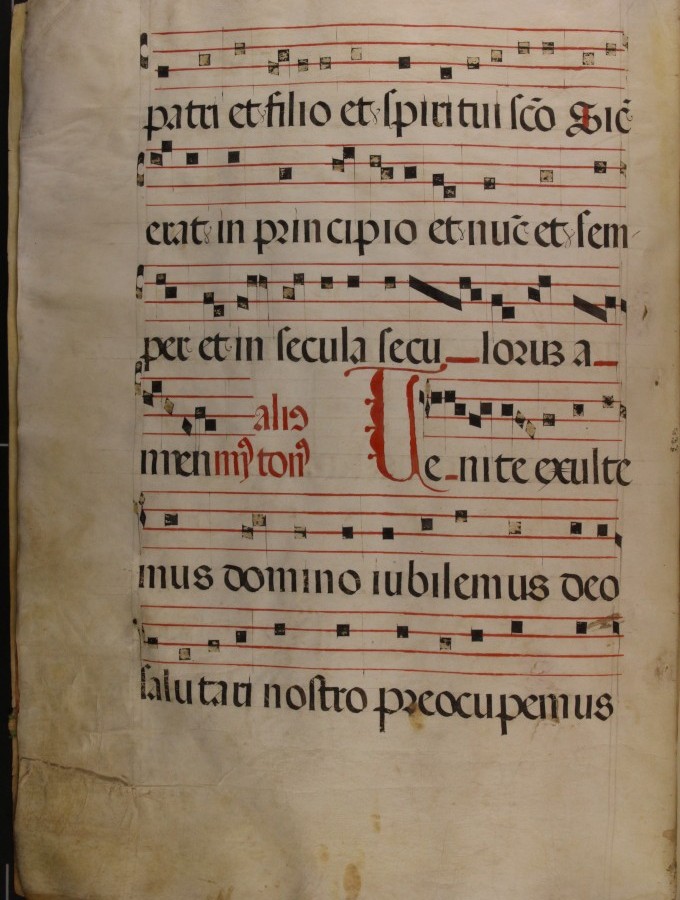 patri et filio et spiritui sc̃o Sic̃
erat in principio et nuc̃ et sem
per et in secula secu_loruʒ a_
men alius
mus tonus
Ue_nite exulte
mus domino iubilemus deo
salutari nostro preocupemus